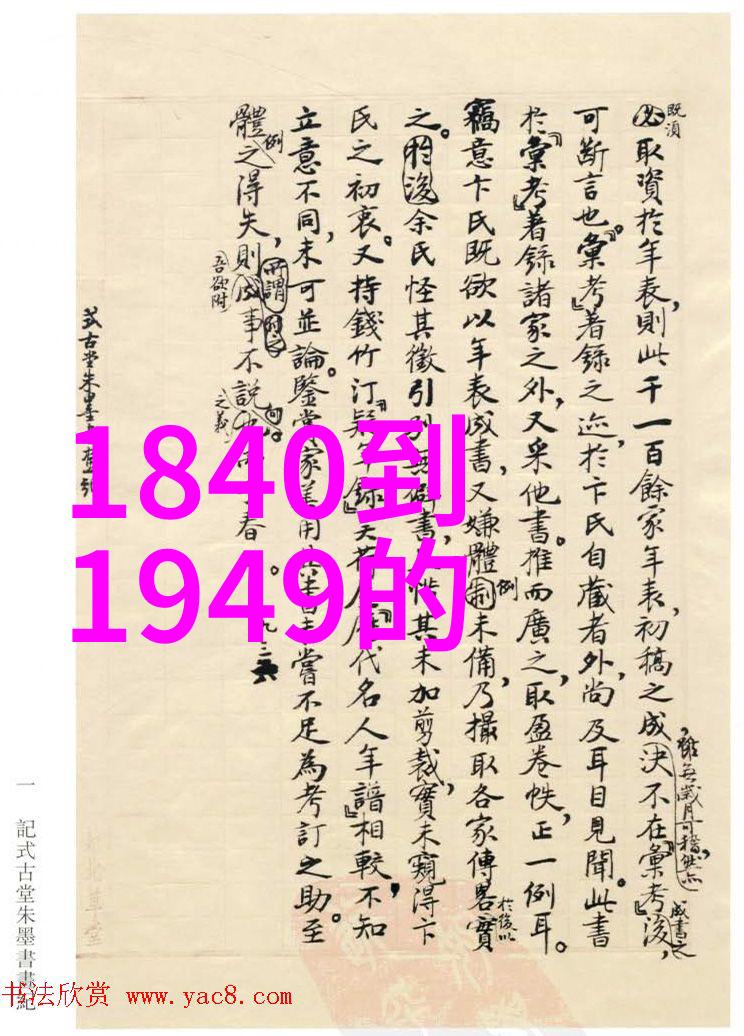 既須
必取資於年表，則此千一百餘家年表，初稿之成決不在『彙考』後，
雖無歲月可稽，然亦
成書之
可斷言也。『彙考』著錄之迹，於卞氏自藏者外，尚及耳目見聞。此書
於『彙考』著錄諸家之外，又采他書。推而廣之，取盈卷帙，正一例耳。
竊意卞氏既欲以年表成書，又嫌體制未備，乃撮取各家傳畧實
例
於後以
之。昀後余氏怪其徵引別無僻書，怪其未加剪裁，實未窺得卞
氏之初衷。又持錢竹汀『疑年錄』歷代名人年譜』相較，不知
立意不同，未可並論。鑒賞家善用其書，未嘗不足為考訂之助。至
體之得失，則成事不說
例
所謂
吾欲附
之義
春
式古堂朱墨書畫紀
1840到
1949的
一 記式古堂朱墨書畫紀
书法欣赏 www.yac8.com